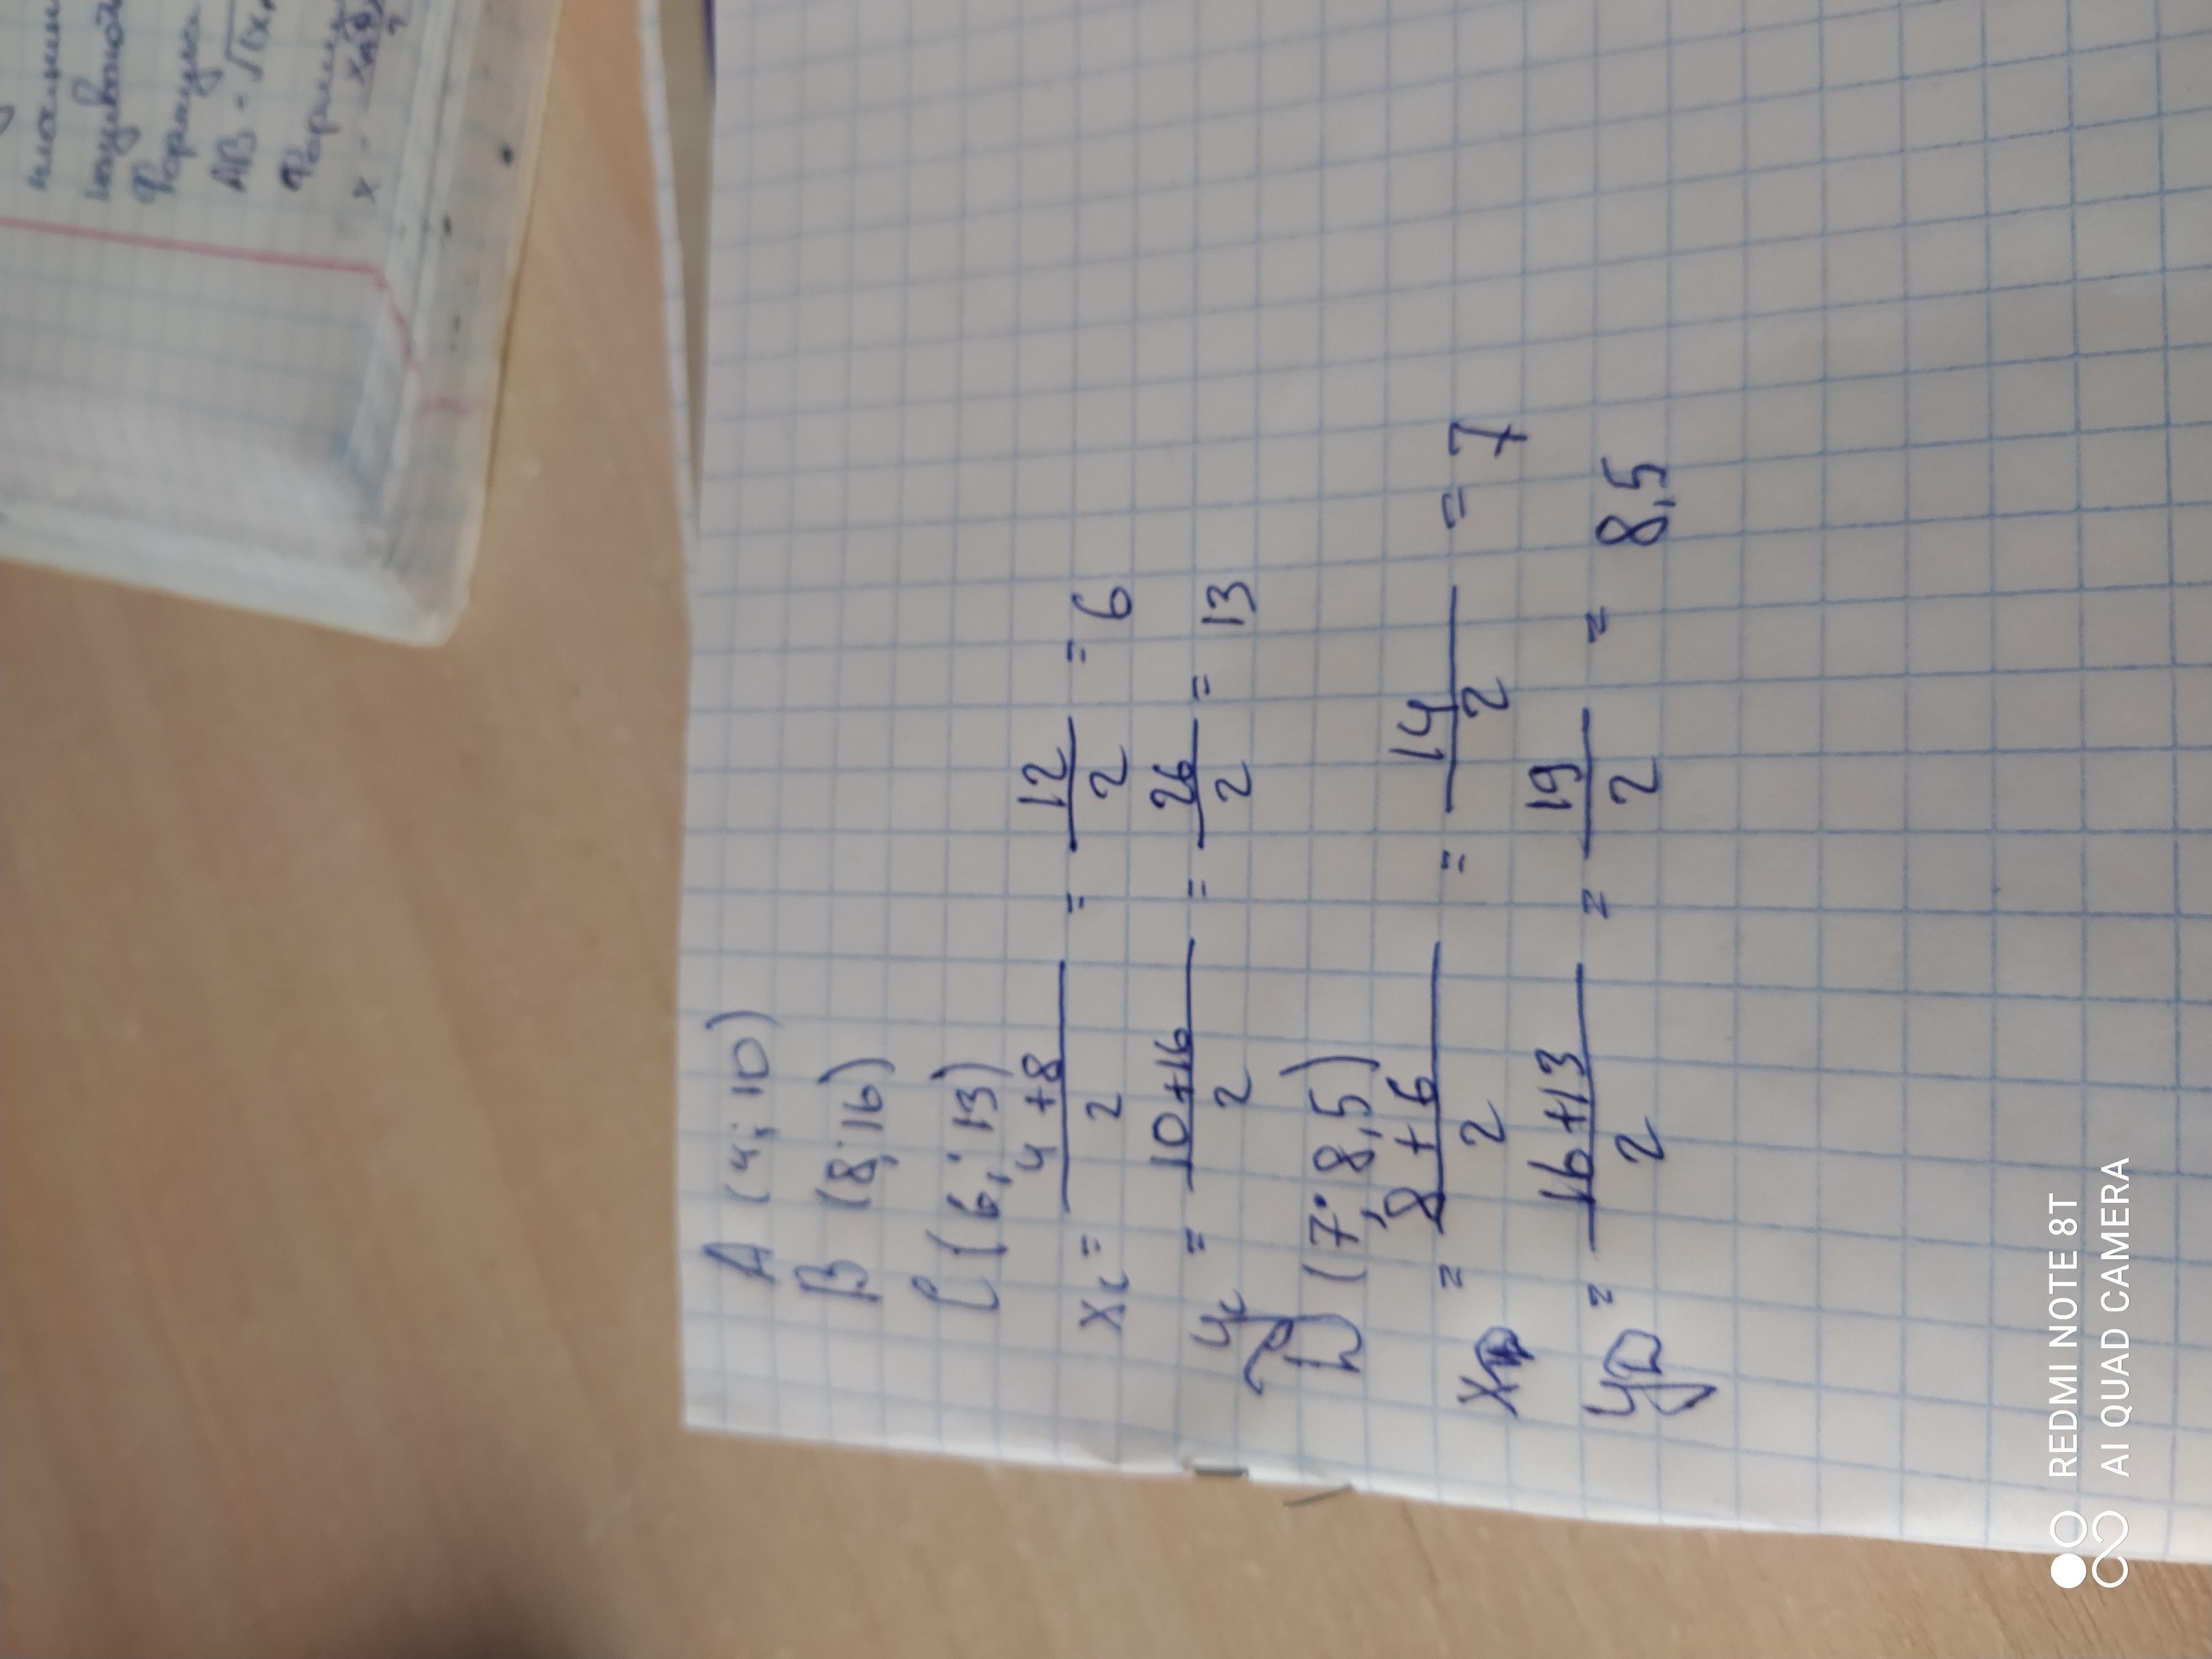 A (4; 10)
B (8; 16)
C (6; 13)
xc = 4+8/2 = 12/2 = 6
yc = 10+16/2 = 26/2 = 13
D (7; 8,5)
xD = 8+6/2 = 14/2 = 7
yD = 16+13/2 = 19/2 = 8,5
Формула
AB = √(x
x =
REDMI NOTE 8T
AI QUAD CAMERA